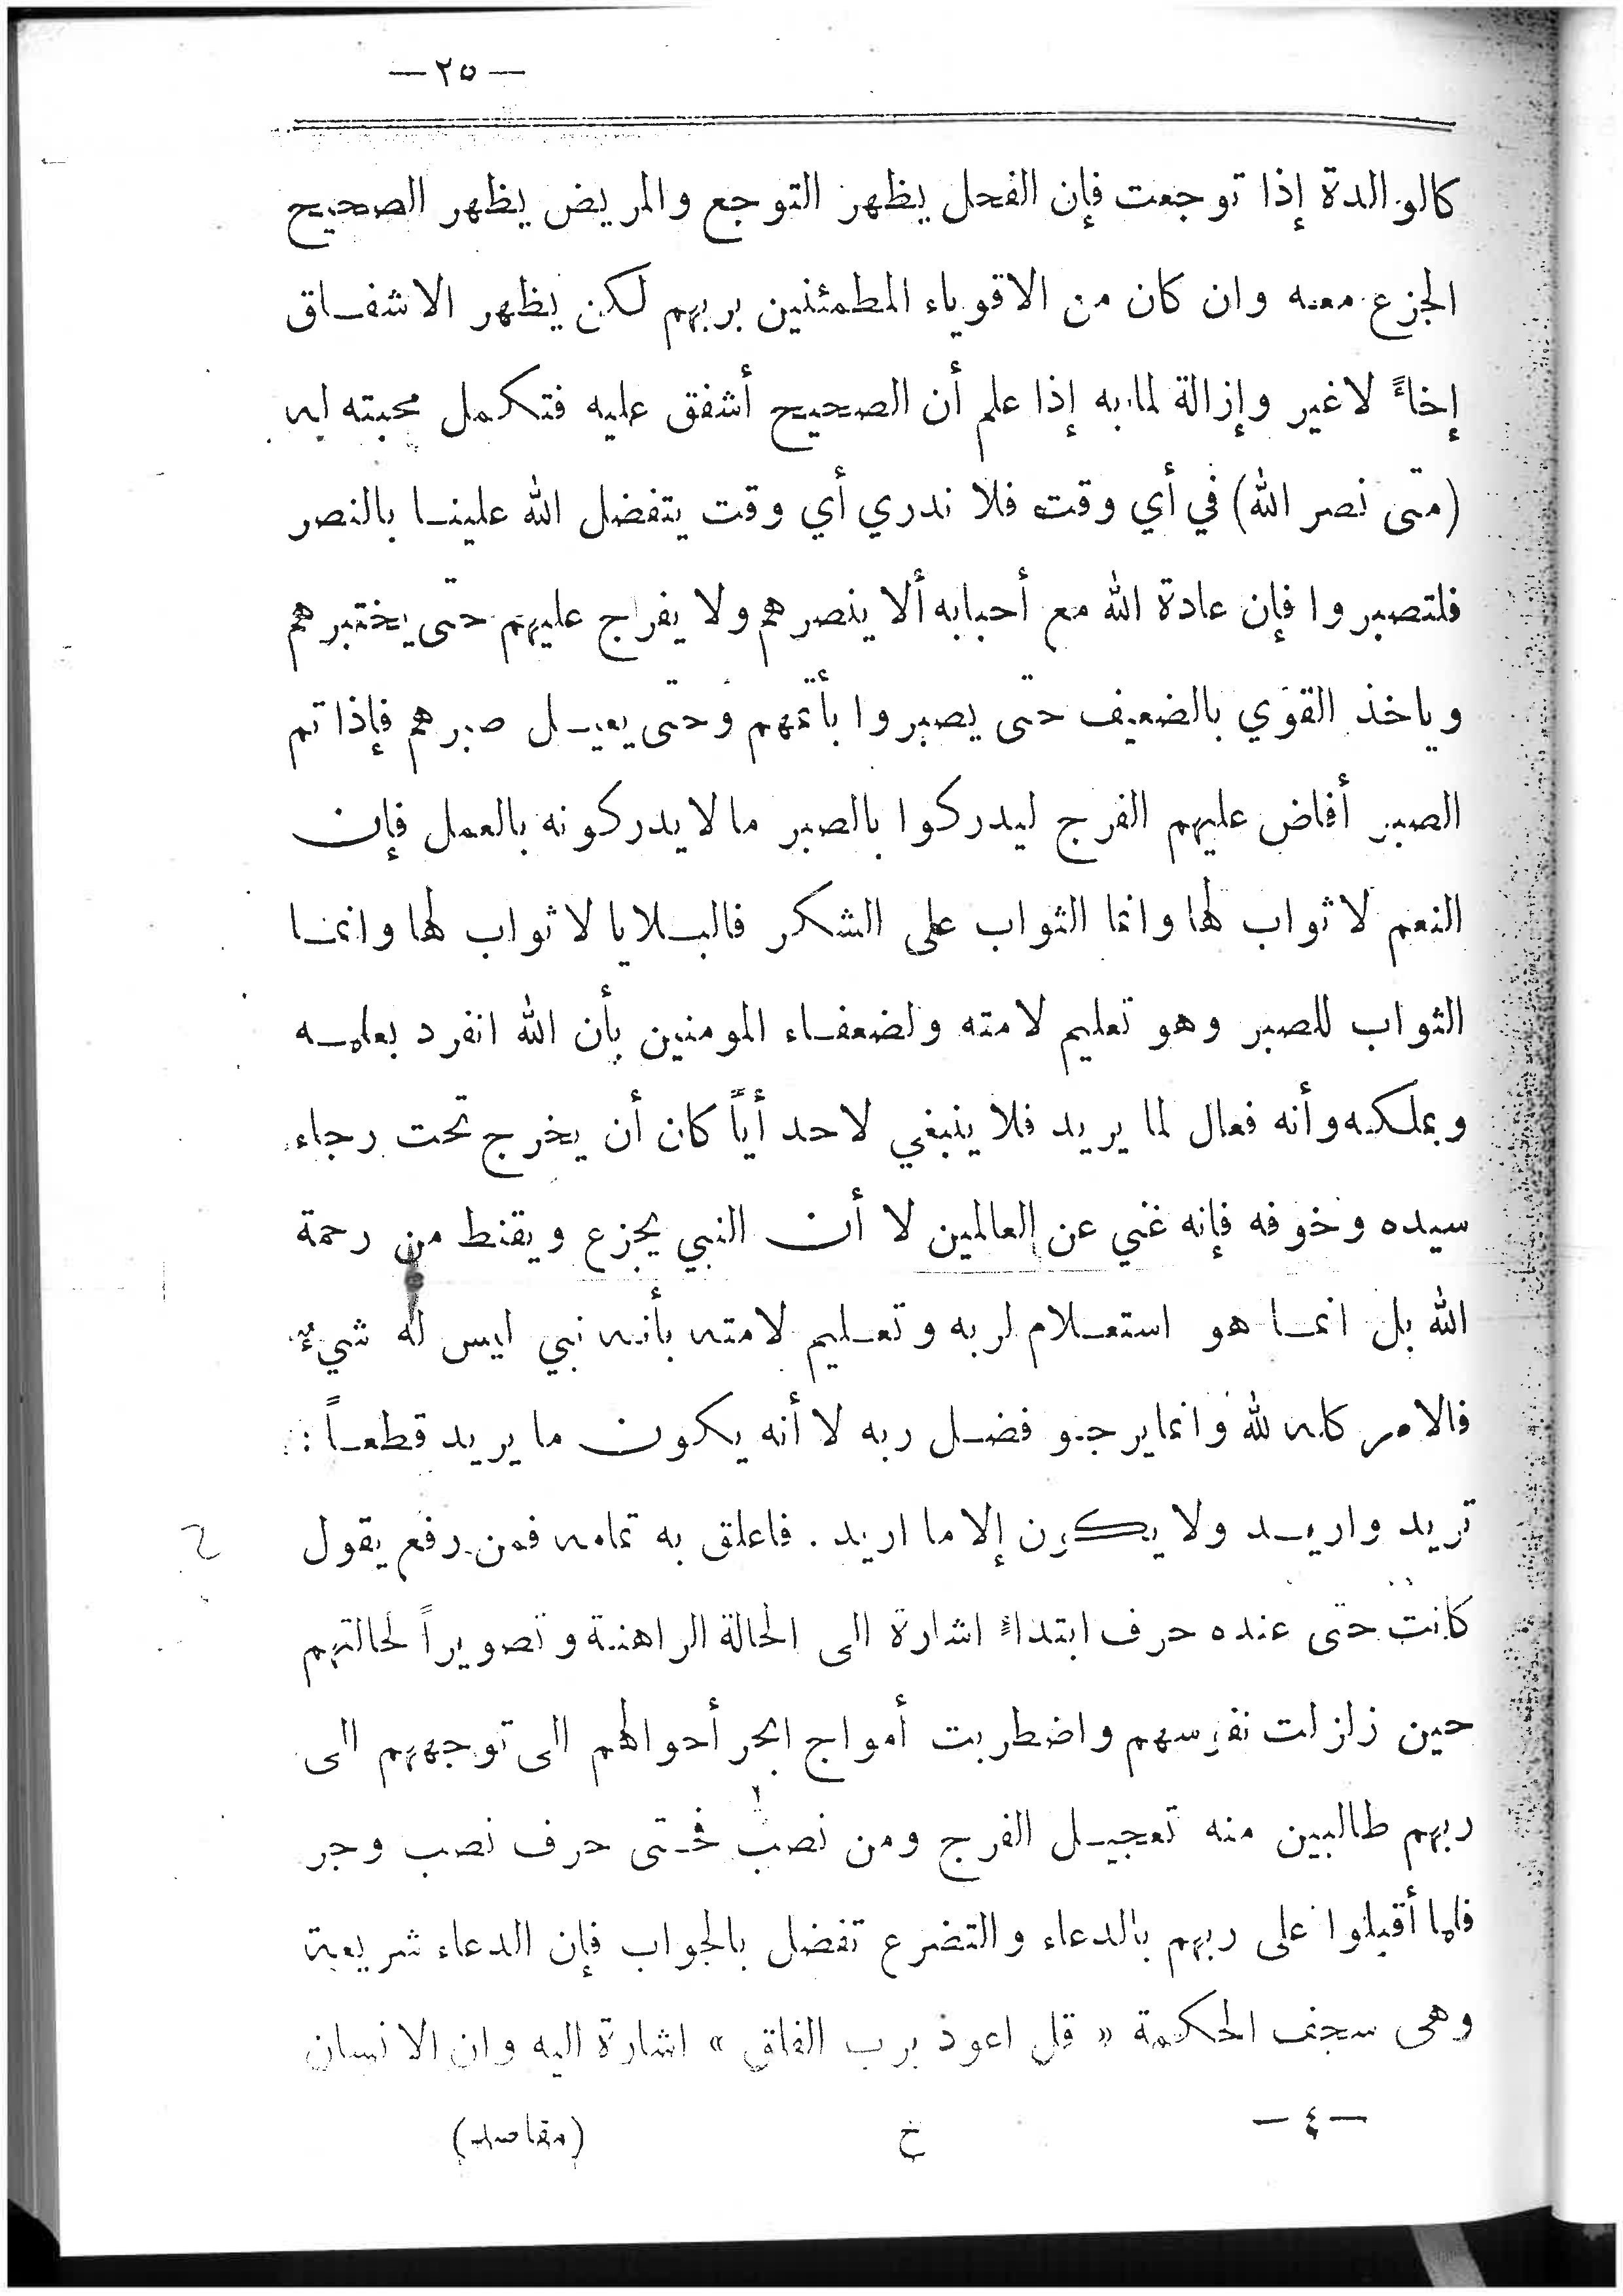 — ٢٥ —
كالوالدة إذا توجعت فإن الفحل يظهر التوجع والمريض يظهر الصحيح
الجزع معه وان كان من الاقوياء المطمئنين بربهم لكن يظهر الاشفاق
إخاءً لاغير وإزالة لما به إذا علم أن الصحيح أشفق عليه فتكمل محبته له
(متى نصر الله) في أي وقت فلا ندري أي وقت يتفضل الله علينا بالنصر
فلتصبروا فإن عادة الله مع أحبابه ألا ينصرهم ولا يفراج عليهم حتى يختبرهم
وياخذ القوي بالضعيف حتى يصبروا بأتمهم وحتى يعيل صبرهم فإذا تم
الصبر أفاض عليهم الفرج ليدركوا بالصبر ما لا يدركونه بالعمل فإن
النعم لا ثواب لها وانما الثواب على الشكر فالبلايا لا ثواب لها وانما
الثواب للصبر وهو تعليم لامته ولضعفاء المومنين بأن الله انفرد بعلمه
وبملكه وأنه فعال لما يريد فلا ينبغي لاحد أياً كان أن يخرج تحت رجاء
سيده وخوفه فإنه غني عن العالمين لا أن النبي يجزع ويقنط من رحمة
الله بل انما هو استعلام لربه وتعليم لامته بأنه نبي ليس له شيءٌ
فالامر كله لله وانما يرجو فضل ربه لا أنه يكون ما يريد قطعاً :
تريد واريد ولا يكون إلا ما اريد . فاعلق به تمامه فمن رفع يقول
كانت حتى عنده حرف ابتداءً اشارة الى الحالة الراهنة وتصويراً لحالتهم
حين زلزلت نفوسهم واضطربت أمواج ابحر أحوالهم الى توجههم الى
ربهم طالبين منه تعجيل الفرج ومن نصب فحتى حرف نصب وجر
فلما أقبلوا على ربهم بالدعاء والتضرع تفضل بالجواب فإن الدعاء شريعة
وهي سجف الحكمة « قل اعوذ برب الفلق » اشارة اليه وان الانسان
— ٤ — خ (مقاصد)